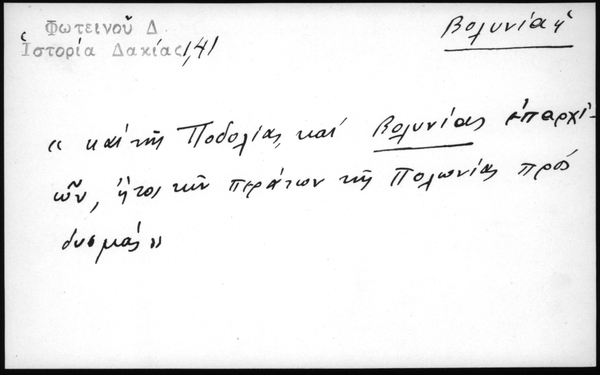 Φωτεινοῦ Δ
Βολυνία ἡ
Ἱστορία Δακίας 1,41
« καί τῆς Ποδολίας, καί Βολυνίας ἐπαρχι-
ῶν, ἤτοι τῶν περάτων τῆς Πολωνίας πρός
δυσμάς »